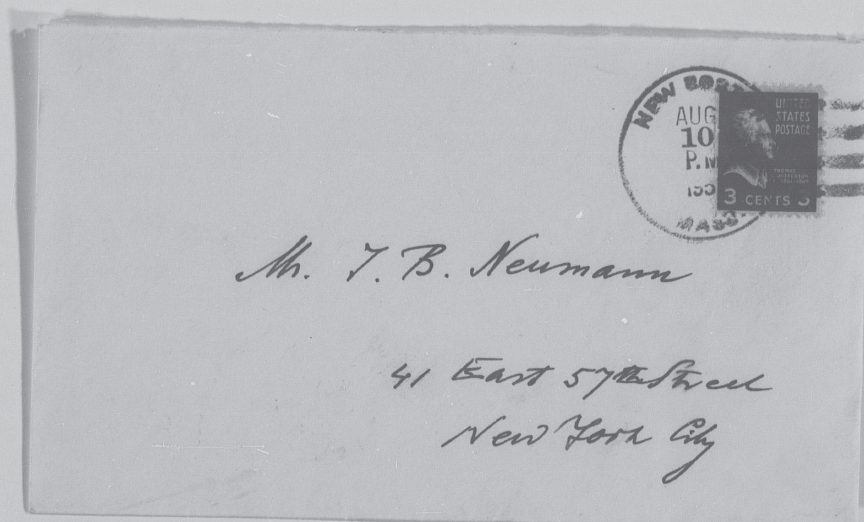 NEW BOST
AUG
10
P.M
195
MASS.
UNITED
STATES
POSTAGE
THOMAS
JEFFERSON
3 CENTS 3
Mr. J. B. Neumann
41 East 57th Street
New York City